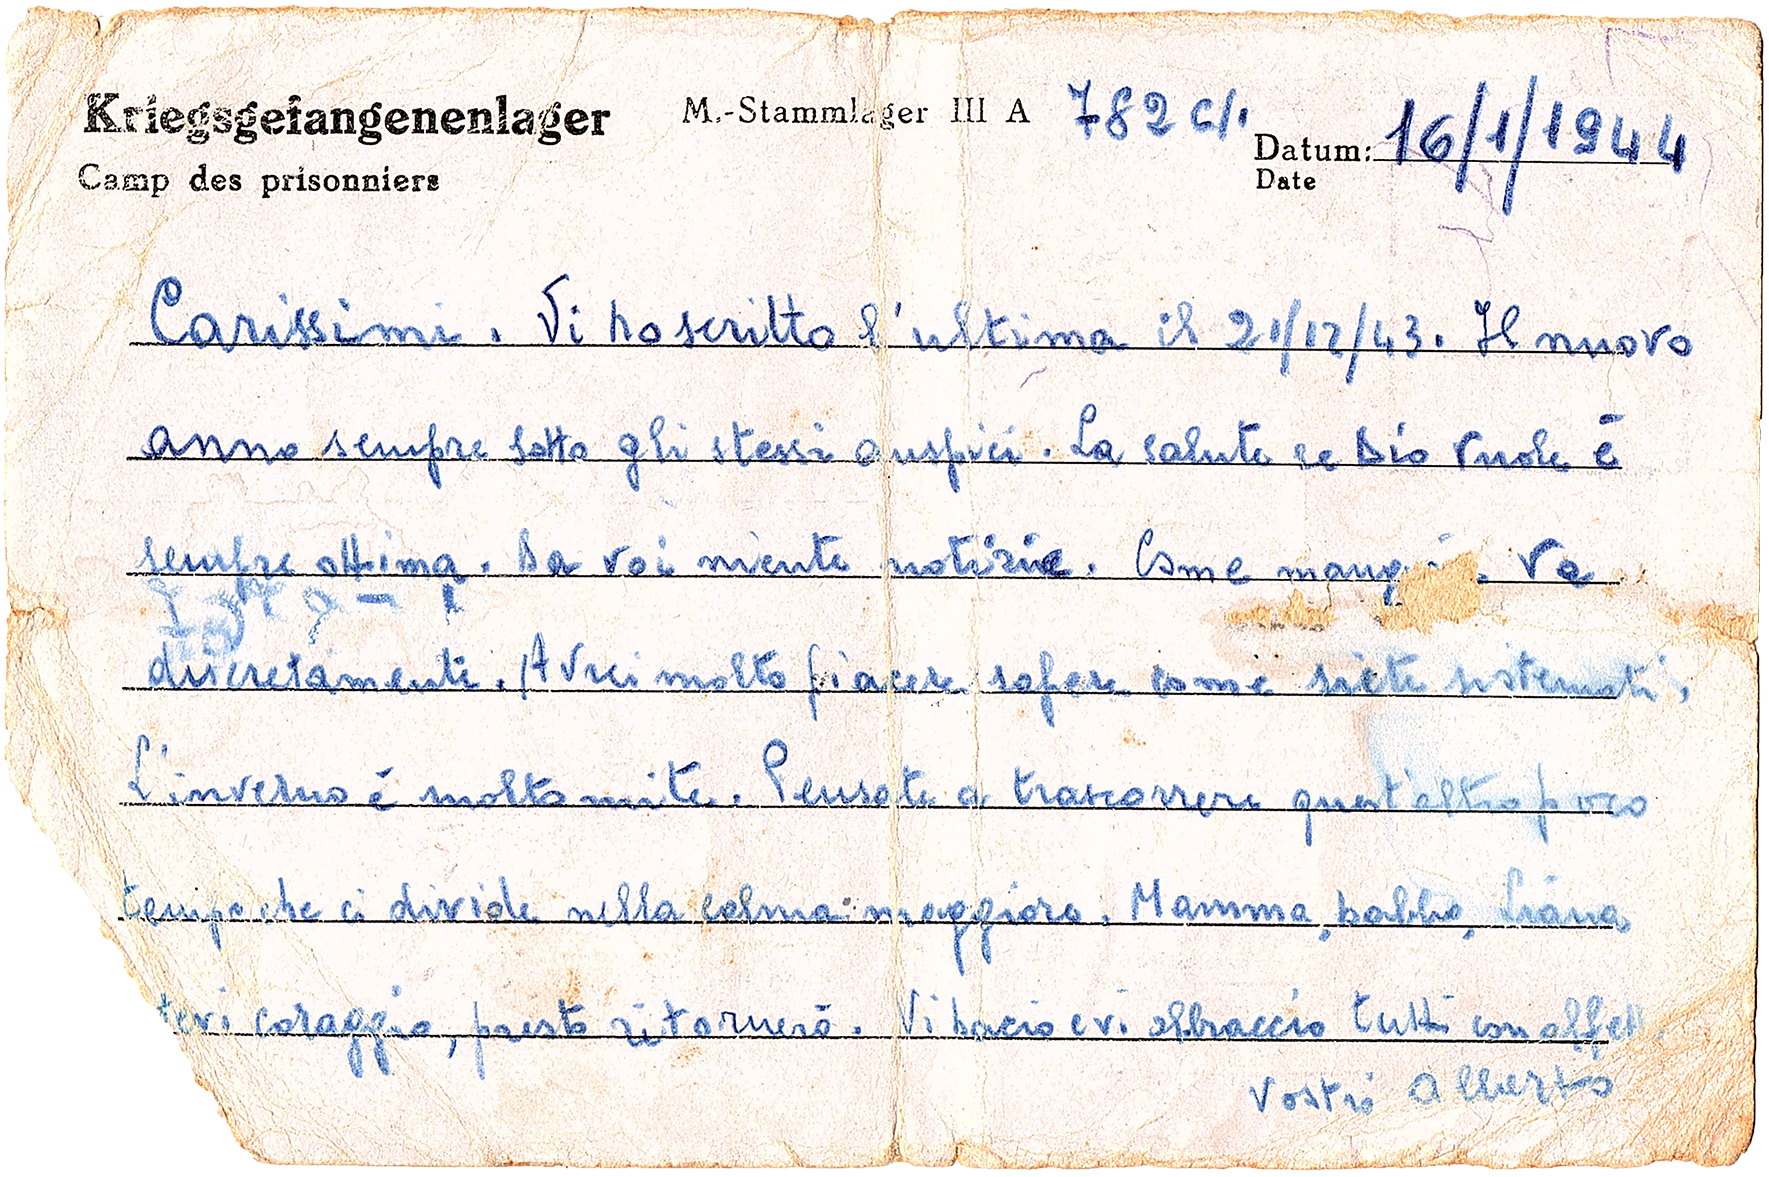 Kriegsgefangenenlager M.-Stammlager III A 782 c/.
Camp des prisonniers
Datum: 16/1/1944
Date
Carissimi. Vi ho scritto l'ultima il 21/12/43. Il nuovo
anno sempre sotto gli stessi auspici. La salute se Dio vuole è
sempre ottima. Da voi niente notizie. Come Va
discretamente. Avrei molto piacere sapere come siete sistemati,
L'inverno è molto mite. Pensate a trascorrere quest'altro poco
tempo che ci divide nella calma maggiore. Mamma, babbo, Liana
tevi coraggio, presto ritornerò. Vi bacio e vi abbraccio tutti con affett
Vostro Alberto